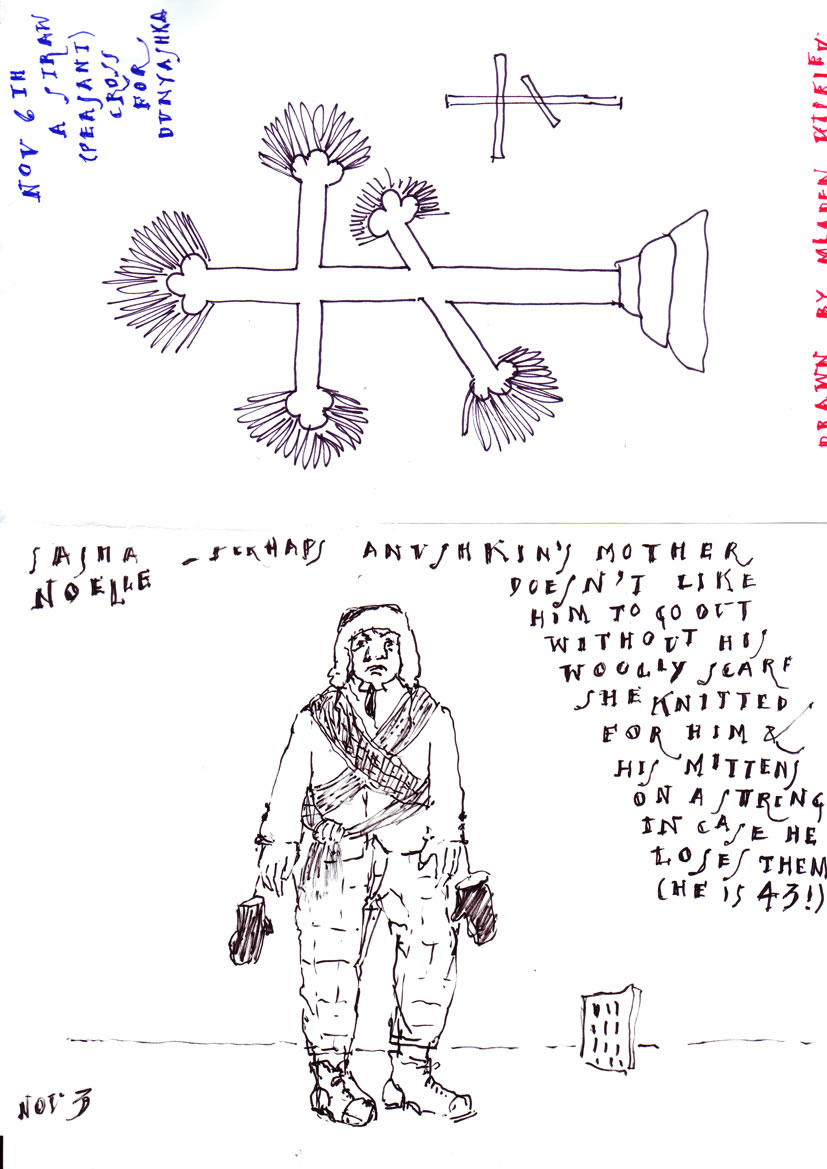 NOV 6TH
A STRAW
(PEASANT)
CROSS
FOR
DUNYASHKA
DRAWN BY MLADEN
SASHA – PERHAPS ANUSHKIN'S MOTHER
NOELLE
DOESN'T LIKE
HIM TO GO OUT
WITHOUT HIS
WOOLLY SCARF
SHE KNITTED
FOR HIM &
HIS MITTENS
ON A STRING
IN CASE HE
LOSES THEM
(HE IS 43!)
NOV 3